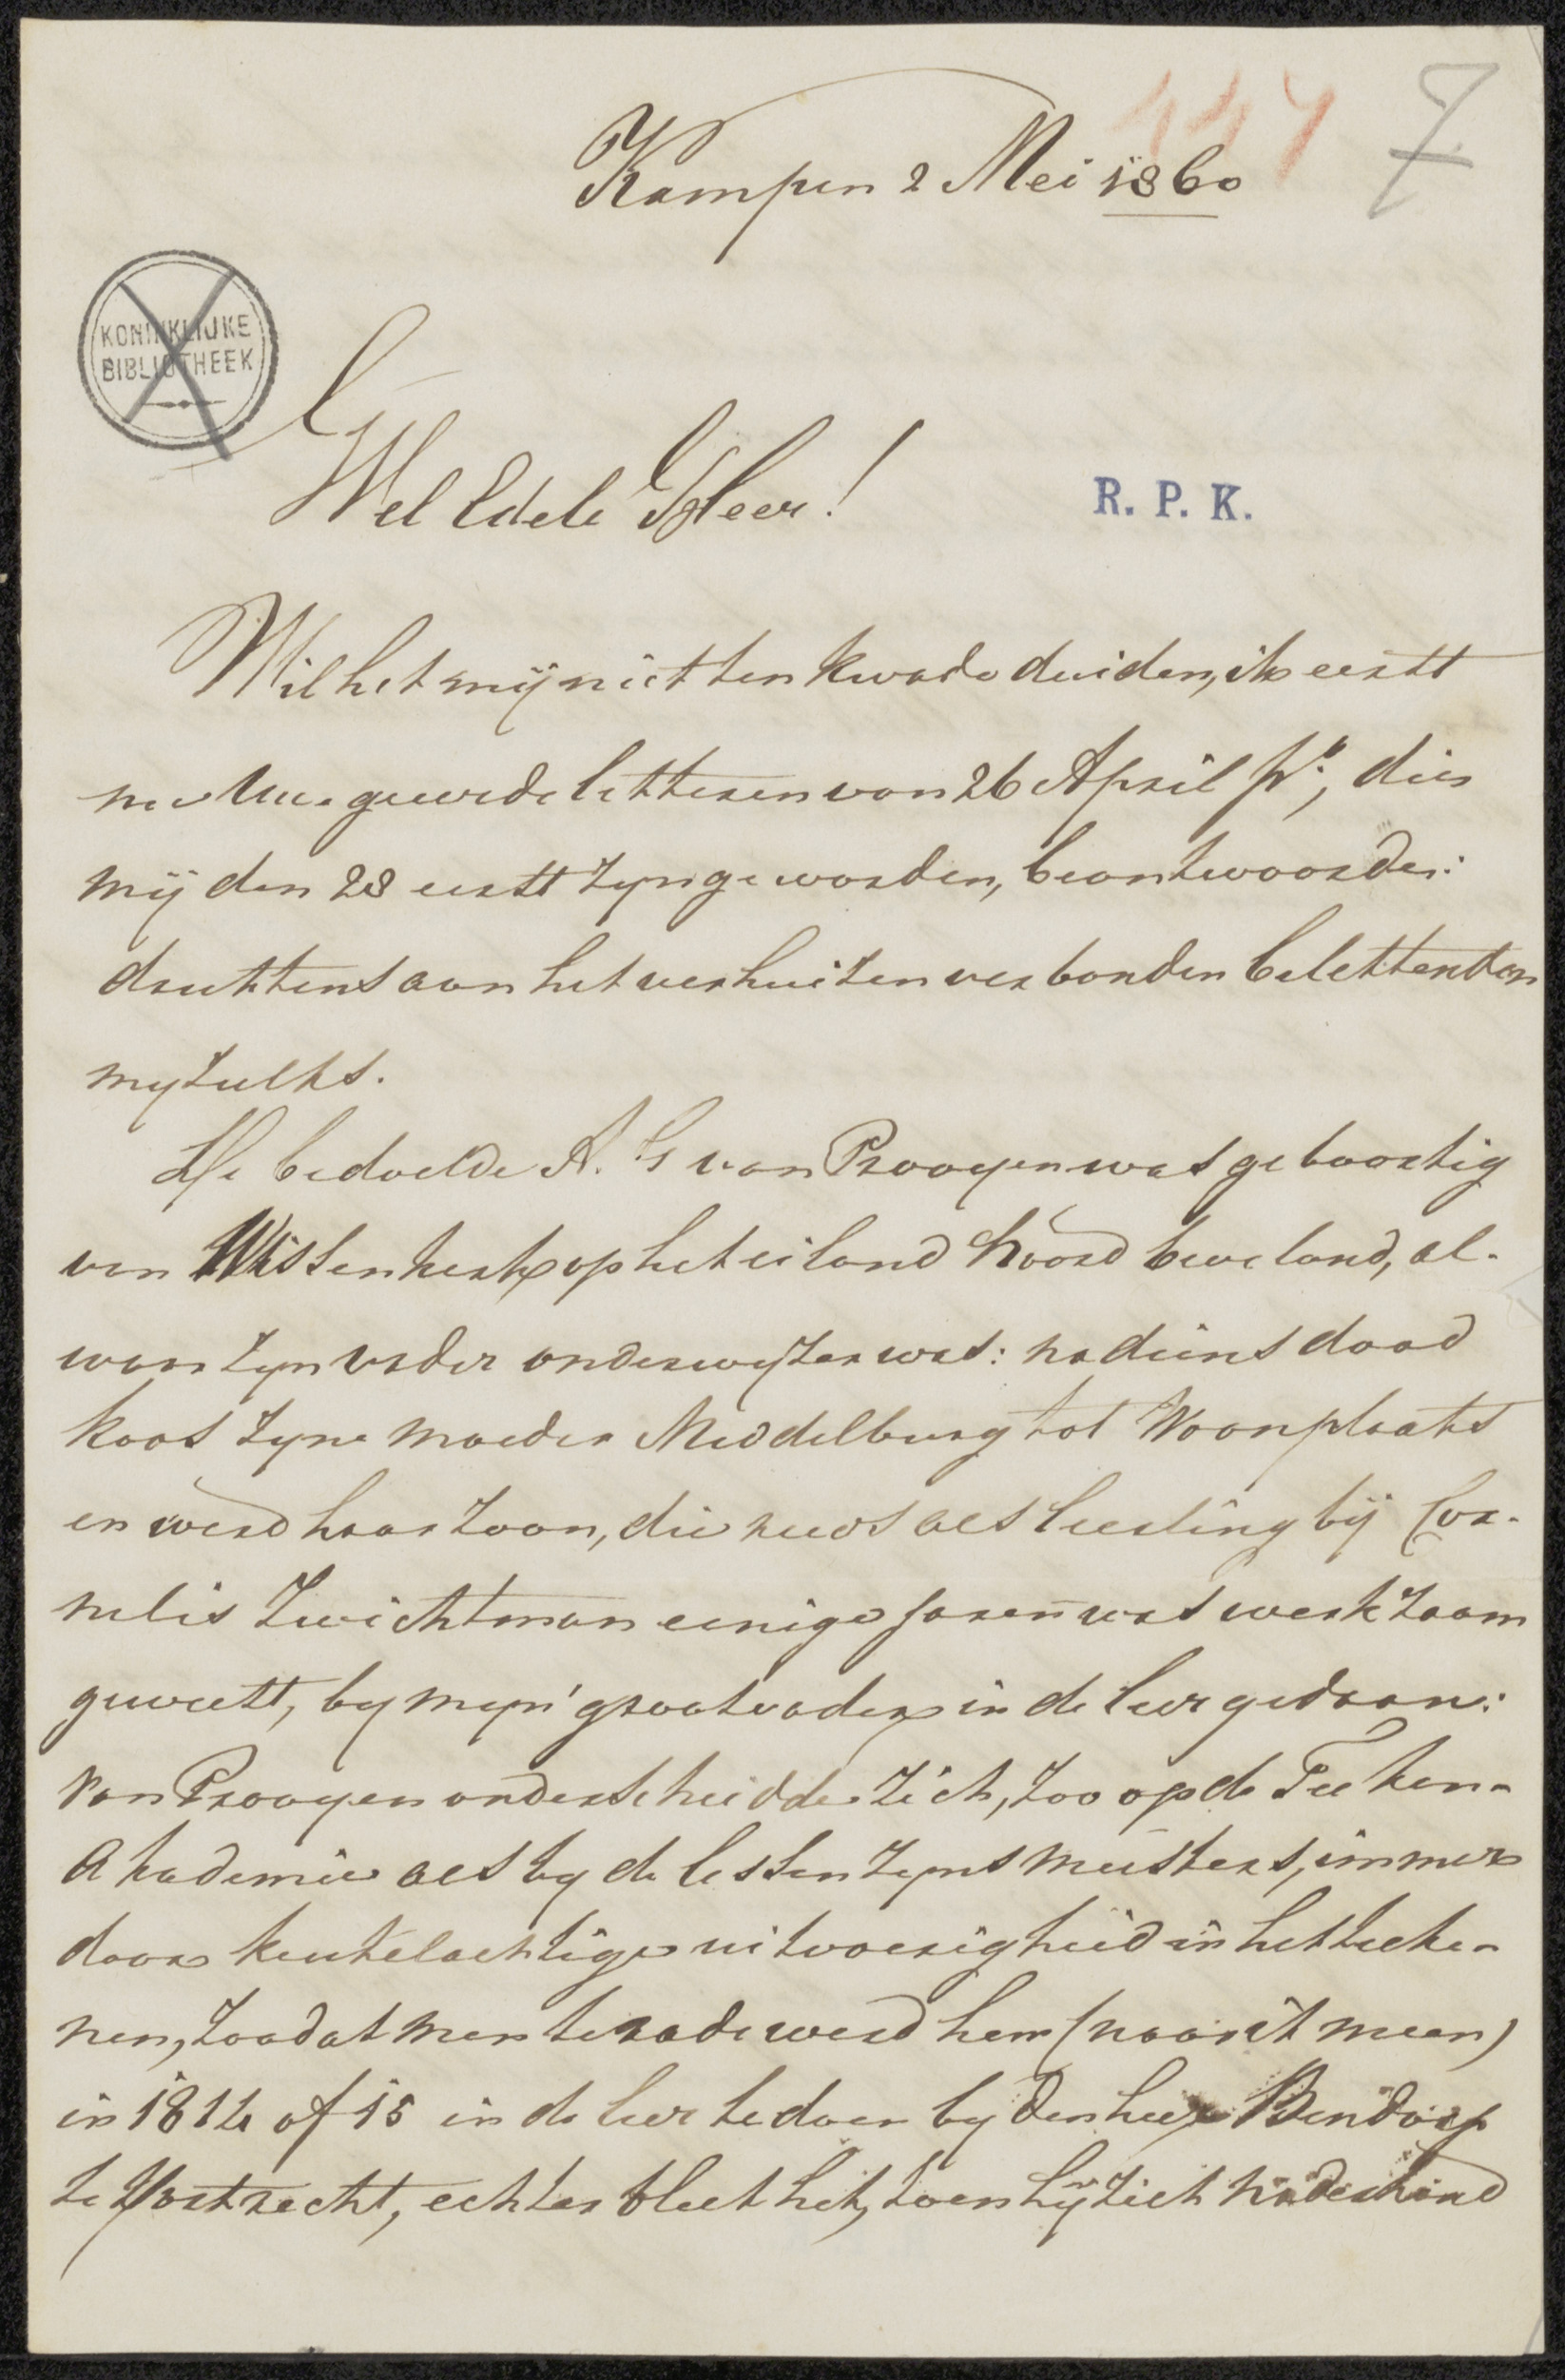 117 7
Kampen 2 Mei 1860
KONINKLIJKE
BIBLIOTHEEK
Wel Edele Heer!
R. P. K.
Wil het mij niet ten kwade duiden, ik eerst
nu Uwe geëerde letteren van 26 April po; die
mij den 28 eerst zyn geworden, beantwoorde:
drukten aan het verhuizen verbonden beletten
my zulks.
De bedoelde A. G van Prooyen was geboortig
van Wissenkerk op het eiland Noord beveland, al-
waar zyn vader onderwyzer was: na diens dood
koos zyne moeder Middelburg tot Woonplaats
en werd haar zoon, die reeds als leerling bij Cor-
nelis Zwichtman eenige jaren was werkzaam
geweest, by myn' grootvader in de leer gedaan:
Van Prooyen onderscheidde zich, zoo op de Teeken-
Akademie als by de lessen zyns meesters, immer
door keurelachtige uitvoerigheid in het teeke-
nen, zoodat men te rade werd hem (naar ik meen)
in 1814 of 15 in de leer te doen by den heer Bendorp
te Dortrecht, echter bleek het, toen hij zich naderhand